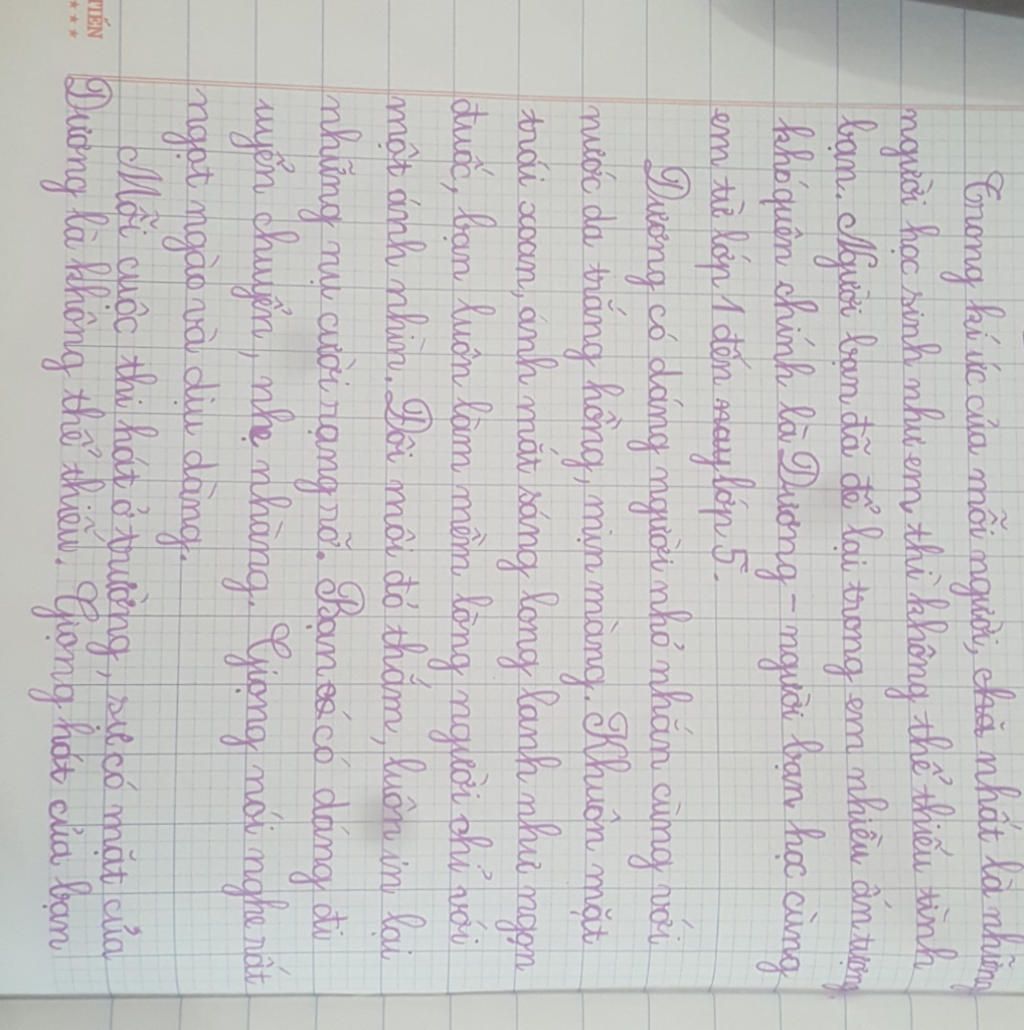 TIẾN
Trong kí ức của mỗi người, nhất là những
người học sinh như em, thì không thể thiếu tình
bạn. Người bạn đã để lại trong em nhiều ấn tượng
khó quên chính là Dương - người bạn học cùng
em từ lớp 1 đến nay lớp 5.
Dương có dáng người nhỏ nhắn cùng với
nước da trắng hồng, mịn màng. Khuôn mặt
trái xoan, ánh mắt sáng long lanh như ngọn
đuốc, bạn luôn làm mềm lòng người chỉ với
một ánh nhìn. Đôi môi đỏ thắm, luôn in lại
những nụ cười rạng rỡ. Bạn có dáng đi
uyển chuyển, nhẹ nhàng. Giọng nói nghe rất
ngọt ngào và dịu dàng.
Mỗi cuộc thi hát ở trường, sẽ có mặt của
Dương là không thể thiếu. Giọng hát của bạn